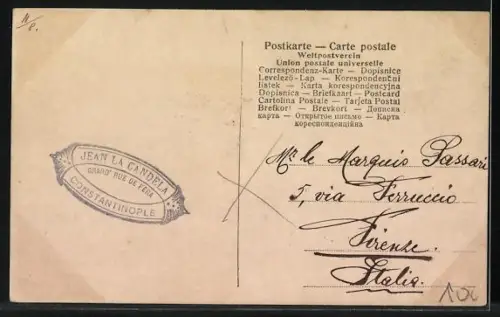 Postkarte — Carte postale
Weltpostverein
Union postale universelle
Correspondenz-Karte — Dopisnice
Levelező-Lap. — Korespondenční
lístek — Karta korespondencyjna
Dopisnica — Briefkaart — Postcard
Cartolina Postale — Tarjeta Postal
Brefkort — Brevkort — Дописна
карта — Открытое письмо — Карта
кореспонденційна
JEAN LA CANDELA
GRAND' RUE DE PÉRA
CONSTANTINOPLE
Mr le Marquis Passari
5, via Ferruccio
Firenze.
Italia.